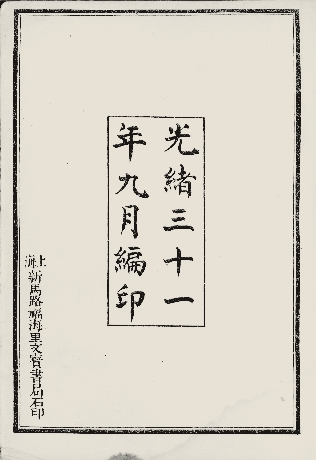 光緒三十一
年九月編印
上海新馬路福海里文寶書局石印